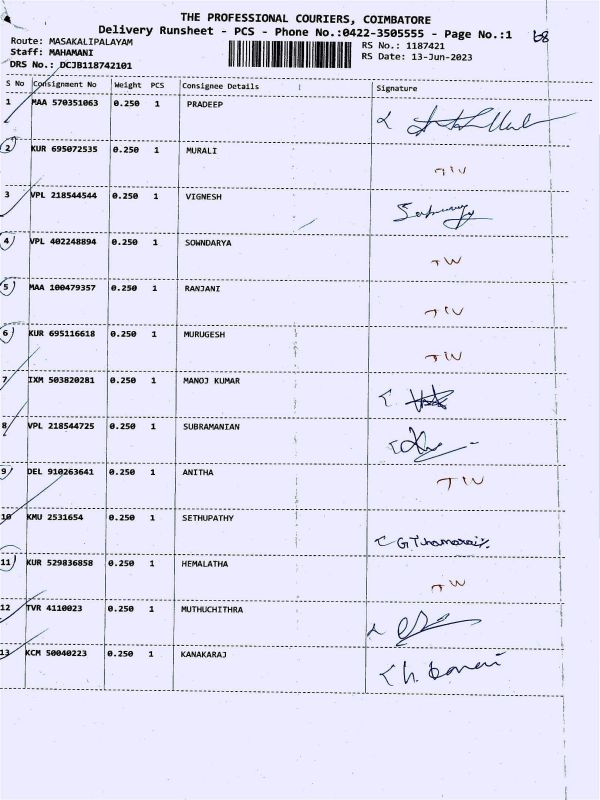 THE PROFESSIONAL COURIERS, COIMBATORE
Delivery Runsheet - PCS - Phone No.:0422-3505555 - Page No.:1
Route: MASAKALIPALAYAM
RS No.: 1187421
Staff: MAHAMANI
RS Date: 13-Jun-2023
DRS No.: DCJB118742101
S No Consignment No Weight PCS Consignee Details Signature
1 MAA 570351063 0.250 1 PRADEEP
2 KUR 695072535 0.250 1 MURALI
3 VPL 218544544 0.250 1 VIGNESH
4 VPL 402248894 0.250 1 SOWNDARYA
5 MAA 100479357 0.250 1 RANJANI
6 KUR 695116618 0.250 1 MURUGESH
7 IXM 503820281 0.250 1 MANOJ KUMAR
8 VPL 218544725 0.250 1 SUBRAMANIAN
9 DEL 910263641 0.250 1 ANITHA
10 KMU 2531654 0.250 1 SETHUPATHY
11 KUR 529836858 0.250 1 HEMALATHA
12 TVR 4110023 0.250 1 MUTHUCHITHRA
13 KCM 50040223 0.250 1 KANAKARAJ